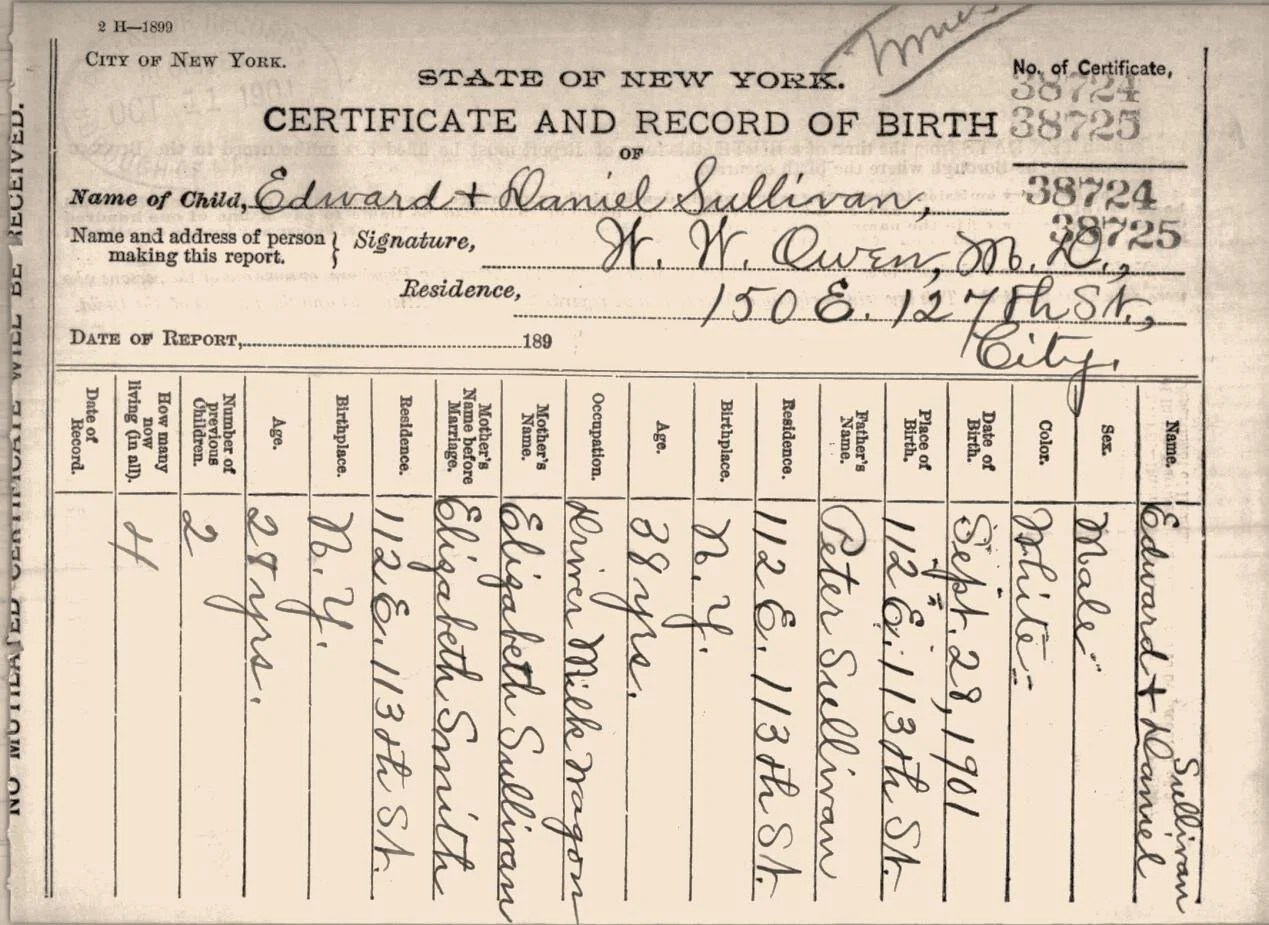 2 H—1899
CITY OF NEW YORK.
STATE OF NEW YORK.
No. of Certificate,
38724
38725
CERTIFICATE AND RECORD OF BIRTH
OF
OCT 11 1901
Name of Child, Edward + Daniel Sullivan,
38724
38725
Name and address of person making this report. } Signature, W. W. Owen, M. D.,
Residence, 150 E. 127th St.,
City.
DATE OF REPORT, 189
Name. Edward + Daniel Sullivan
Sex. Male
Color. White
Date of Birth. Sept. 28, 1901
Place of Birth. 112 E. 113th St.
Father's Name. Peter Sullivan
Residence. 112 E. 113th St.
Birthplace. N. Y.
Age. 38 yrs.
Occupation. Driver Milk Wagon
Mother's Name. Elizabeth Sullivan
Mother's Name before Marriage. Elizabeth Smith
Residence. 112 E. 113th St.
Birthplace. N. Y.
Age. 28 yrs.
Number of previous Children. 2
How many now living (in all). 4
Date of Record.
NO MUTILATED CERTIFICATE WILL BE RECEIVED.